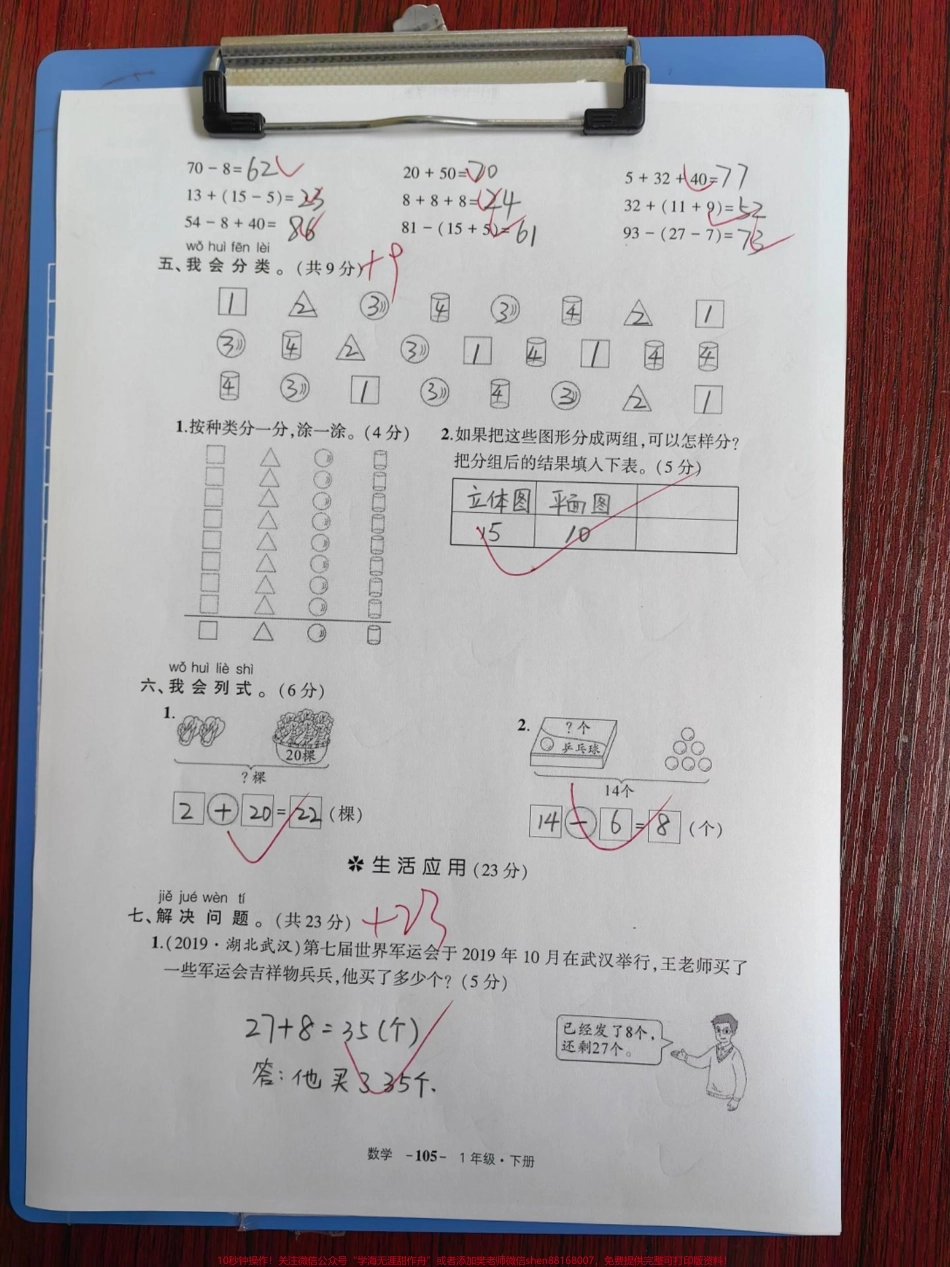 70-8=62
20+50=70
5+32+40=77
13+(15-5)=23
8+8+8=24
32+(11+9)=52
54-8+40=86
81-(15+5)=61
93-(27-7)=73
wǒ huì fēn lèi
五、我会分类。(共9分) +9
1 2 3 4 3 4 2 1
3 4 2 3 1 4 1 4 4
4 3 1 3 4 3 2 1
1.按种类分一分,涂一涂。(4分)
2.如果把这些图形分成两组,可以怎样分?
把分组后的结果填入下表。(5分)
立体图 平面图
15 10
wǒ huì liè shì
六、我会列式。(6分)
1.
20棵
?棵
2+20=22(棵)
2.
?个
乒乓球
14个
14-6=8(个)
生活应用(23分)
jiě jué wèn tí
七、解决问题。(共23分) +23
1.(2019·湖北武汉)第七届世界军运会于2019年10月在武汉举行,王老师买了
一些军运会吉祥物兵兵,他买了多少个?(5分)
27+8=35(个)
答:他买3 35个.
已经发了8个,
还剩27个。
数学 -105- 1年级·下册
10秒钟操作!关注微信公众号"学海无涯甜作舟"或者添加樊老师微信shen88168007,免费提供完整可打印版资料!